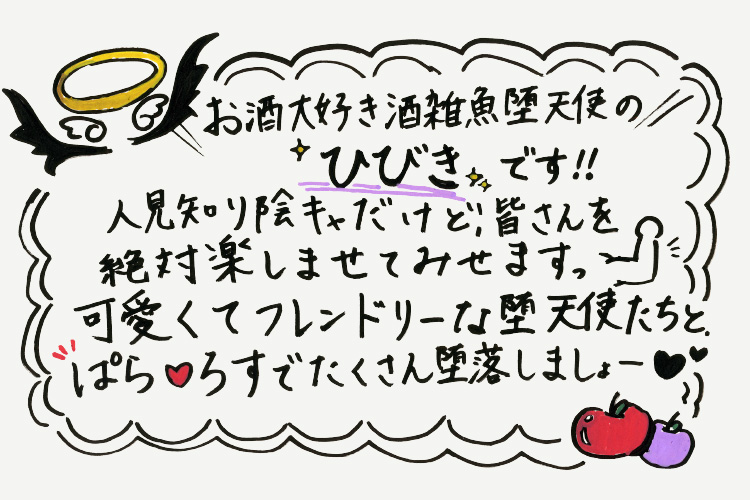 お酒大好き酒雑魚堕天使の
ひびきです!!
人見知り陰キャだけど、皆さんを
絶対楽しませてみせますっ
可愛くてフレンドリーな堕天使たちと、
ぱら♥ろすでたくさん堕落しましょー♥♥